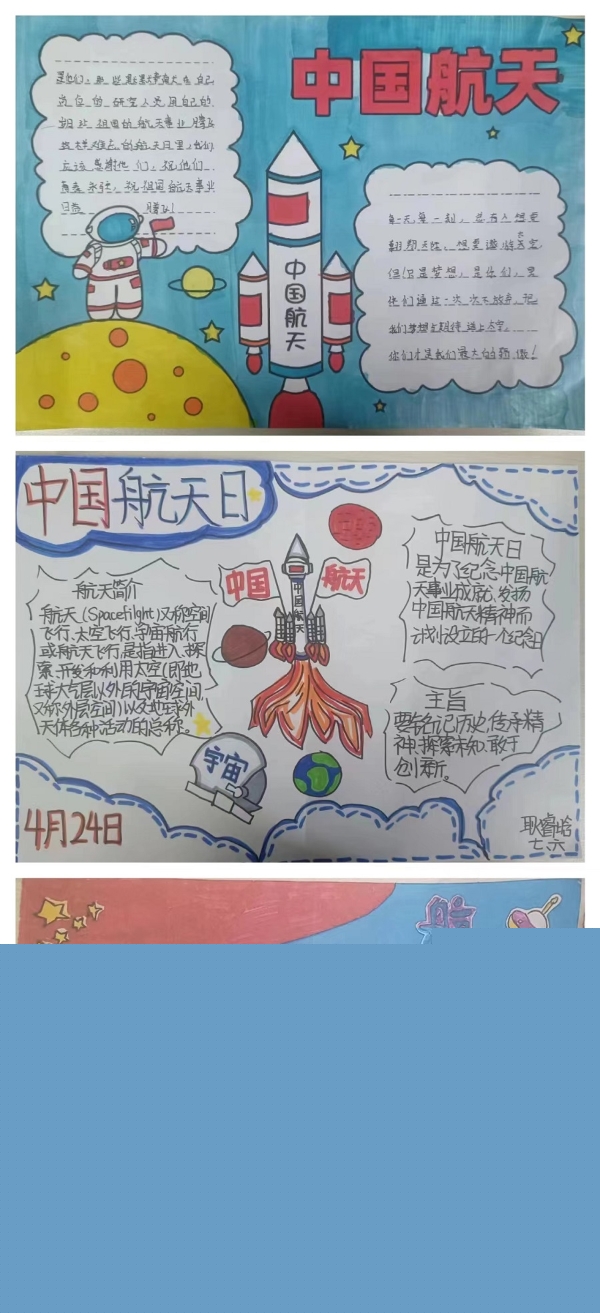 中国航天
是他们,那些默默奉献在自己
岗位的研究人员用自己的
祖国的航天事业腾飞
的航天日里,我们
应该感谢他们,祝他们
祝祖国航天事业
日益腾飞!
中国航天
每一天每一刻,总有人想要
想要遨游太空
但仅是梦想,是你们,是
你们通过一次次不放弃,把
我们梦想主期待送上太空。
你们才是我们最大的骄傲!
中国航天日
航天简介
航天(Spaceflight)又称空间
飞行,太空飞行,宇宙航行
或航天飞行,是指进入、探
索、开发和利用太空(即地
球大气层以外的宇宙空间,
又称外层空间)以及地球外
天体各种活动的总称。
中国
航天
中国航天
宇宙
中国航天日
是为了纪念中国航
天事业成就,发扬
中国航天精神而
计划设立的一个纪念日
主旨
要铭记历史,传承精
神,探索未知,敢于
创新。
4月24日
七、六
航